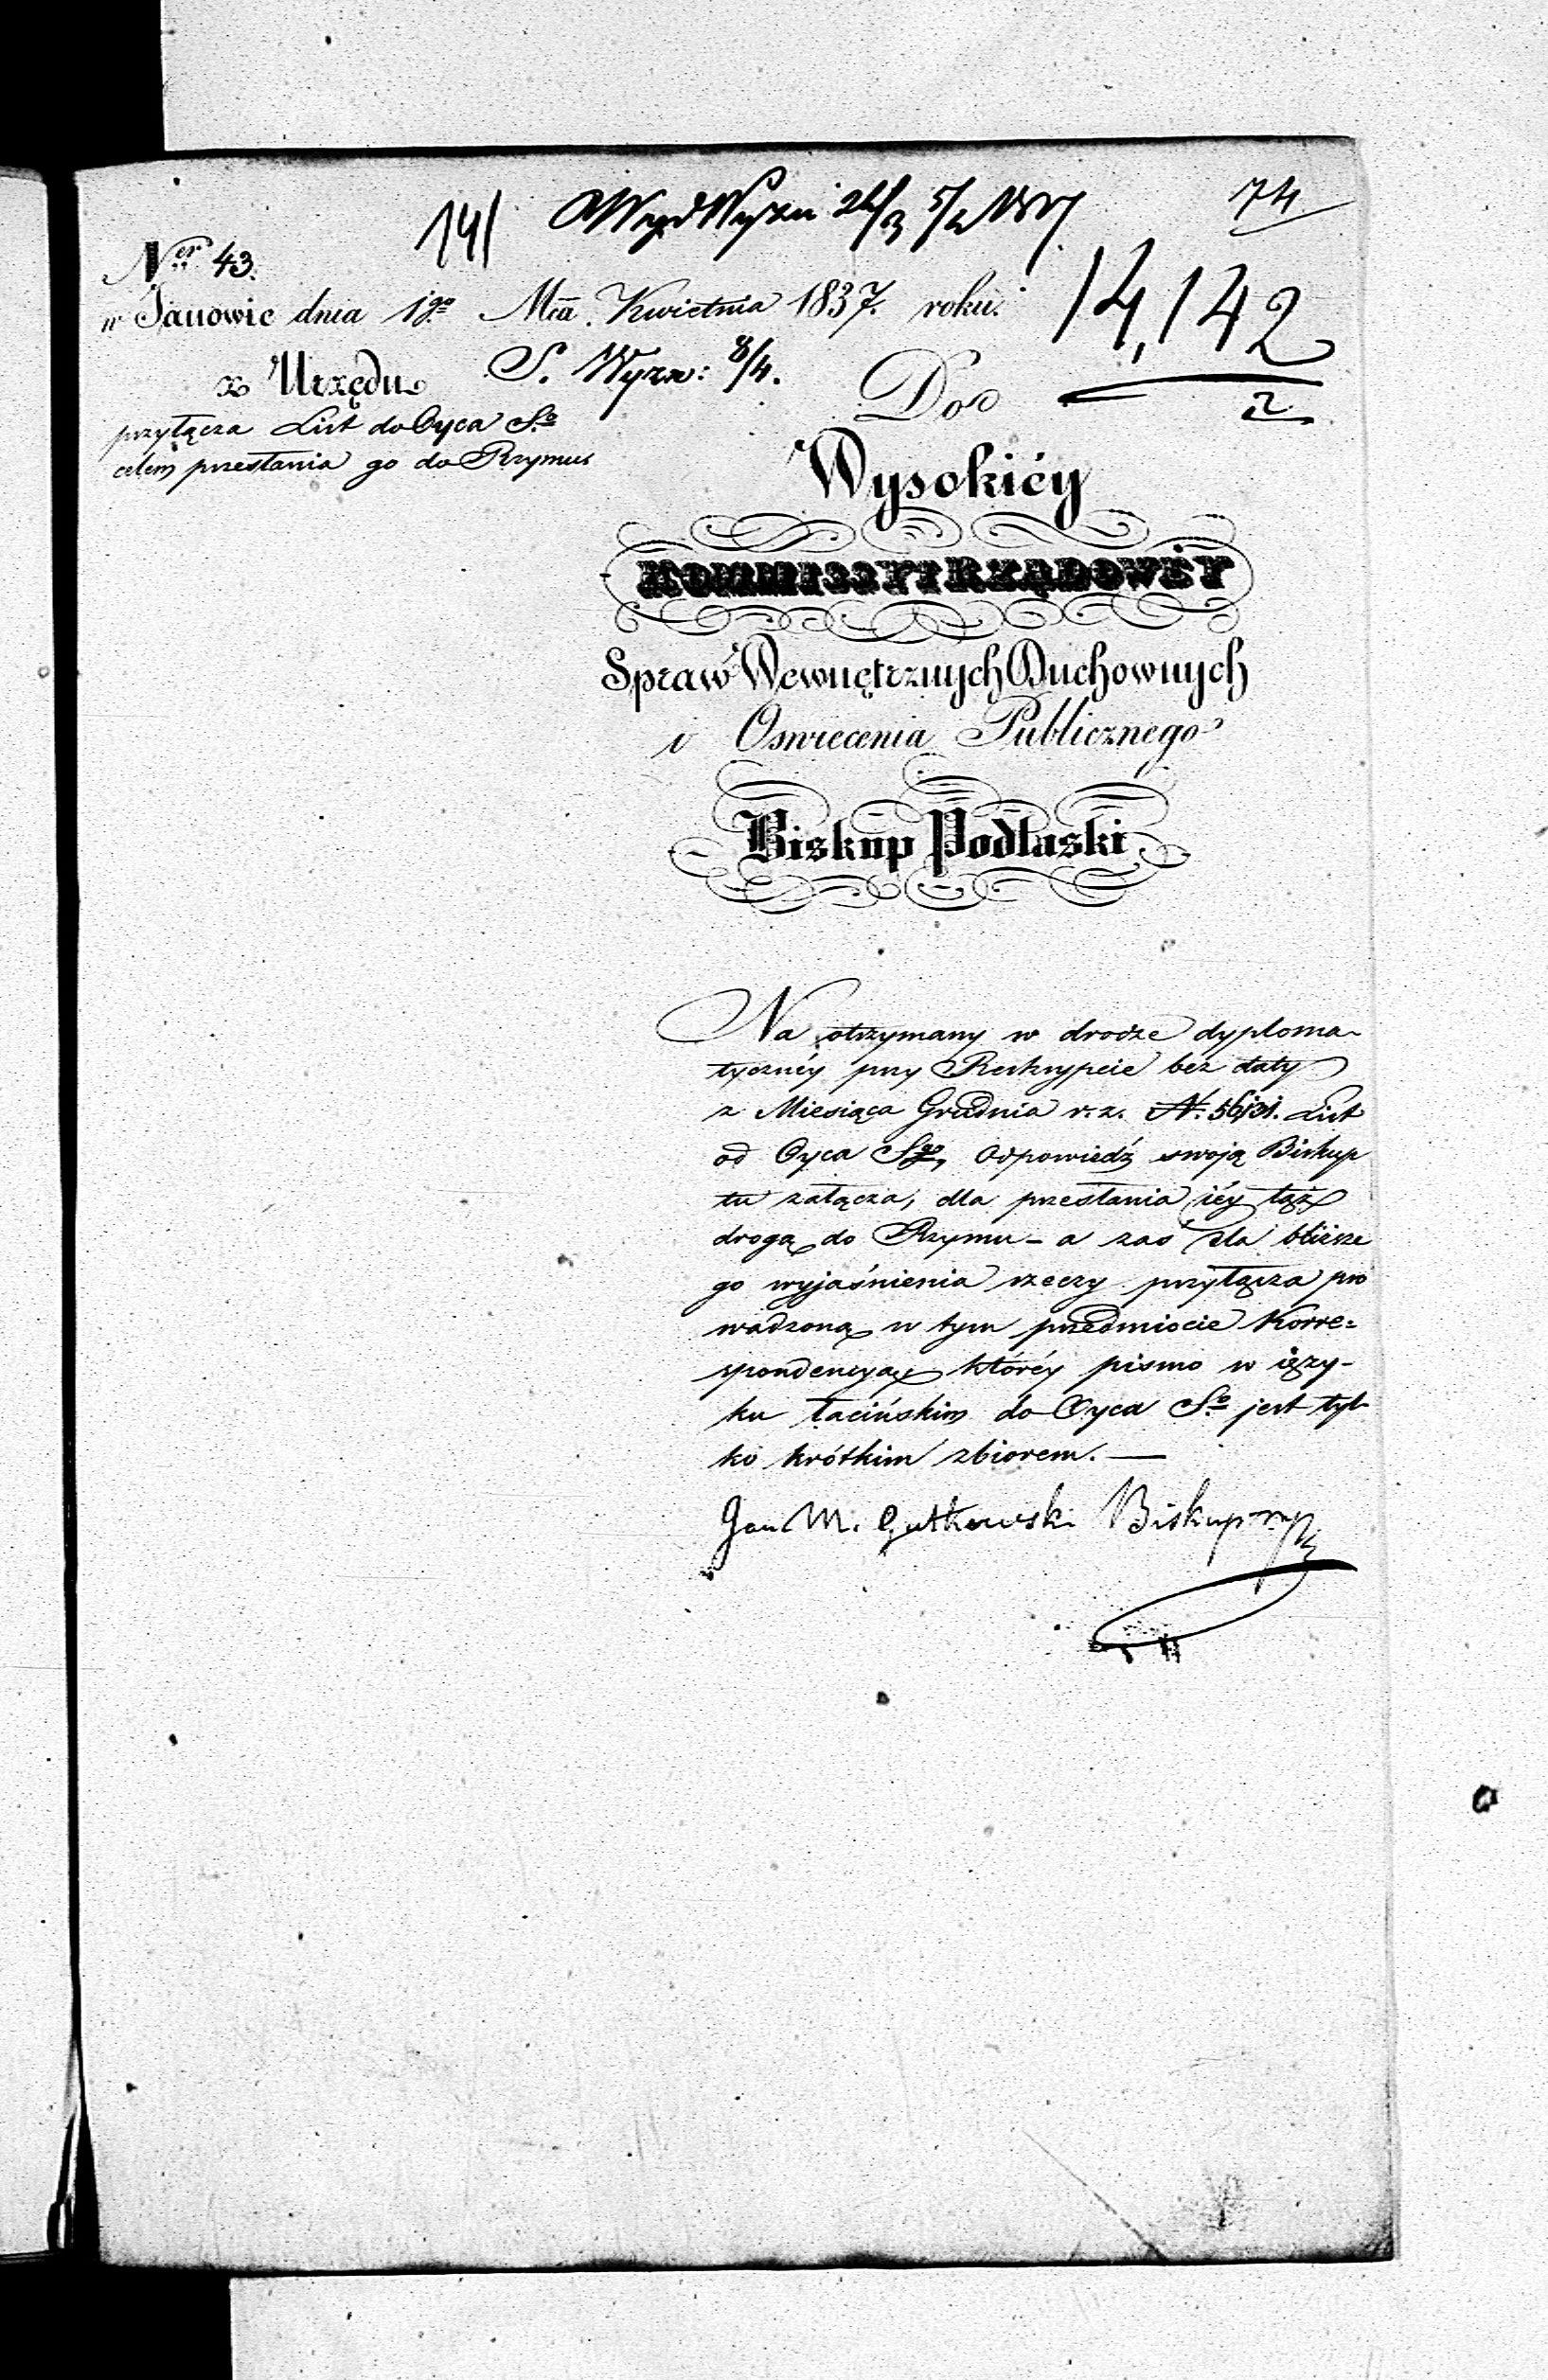 141
74
Ner 43.
w Janowie dnia 1go Mca. Kwietnia 1837. roku.
14,142
2
z Urzędu
S. Wyzn: 8/4.
Do
przyłącza List do Oyca So
celem przesłania go do Rzymu
Wysokiéy
KOMMISSYI RZĄDOWÉY
Spraw Wewnętrznych Duchownych
i Oswiecenia Publicznego
Biskup Podlaski
Na otrzymany w drodze dyploma-
tycznéy przy Reskrypcie bez daty
z Miesiąca Grudnia r. z. N. List
od Oyca Sgo, odpowiedź swoją Biskup
tu załącza, dla przesłania iéy tąż
drogą do Rzymu - a zaś dla bliższe
go wyjaśnienia rzeczy przyłącza pro
wadzoną w tym przedmiocie Korre=
spondencyą, któréy pismo w ięzy-
ku łacińskim do Oyca So jest tyl-
ko krótkim zbiorem. —
Jan M. Gutkowski Biskup